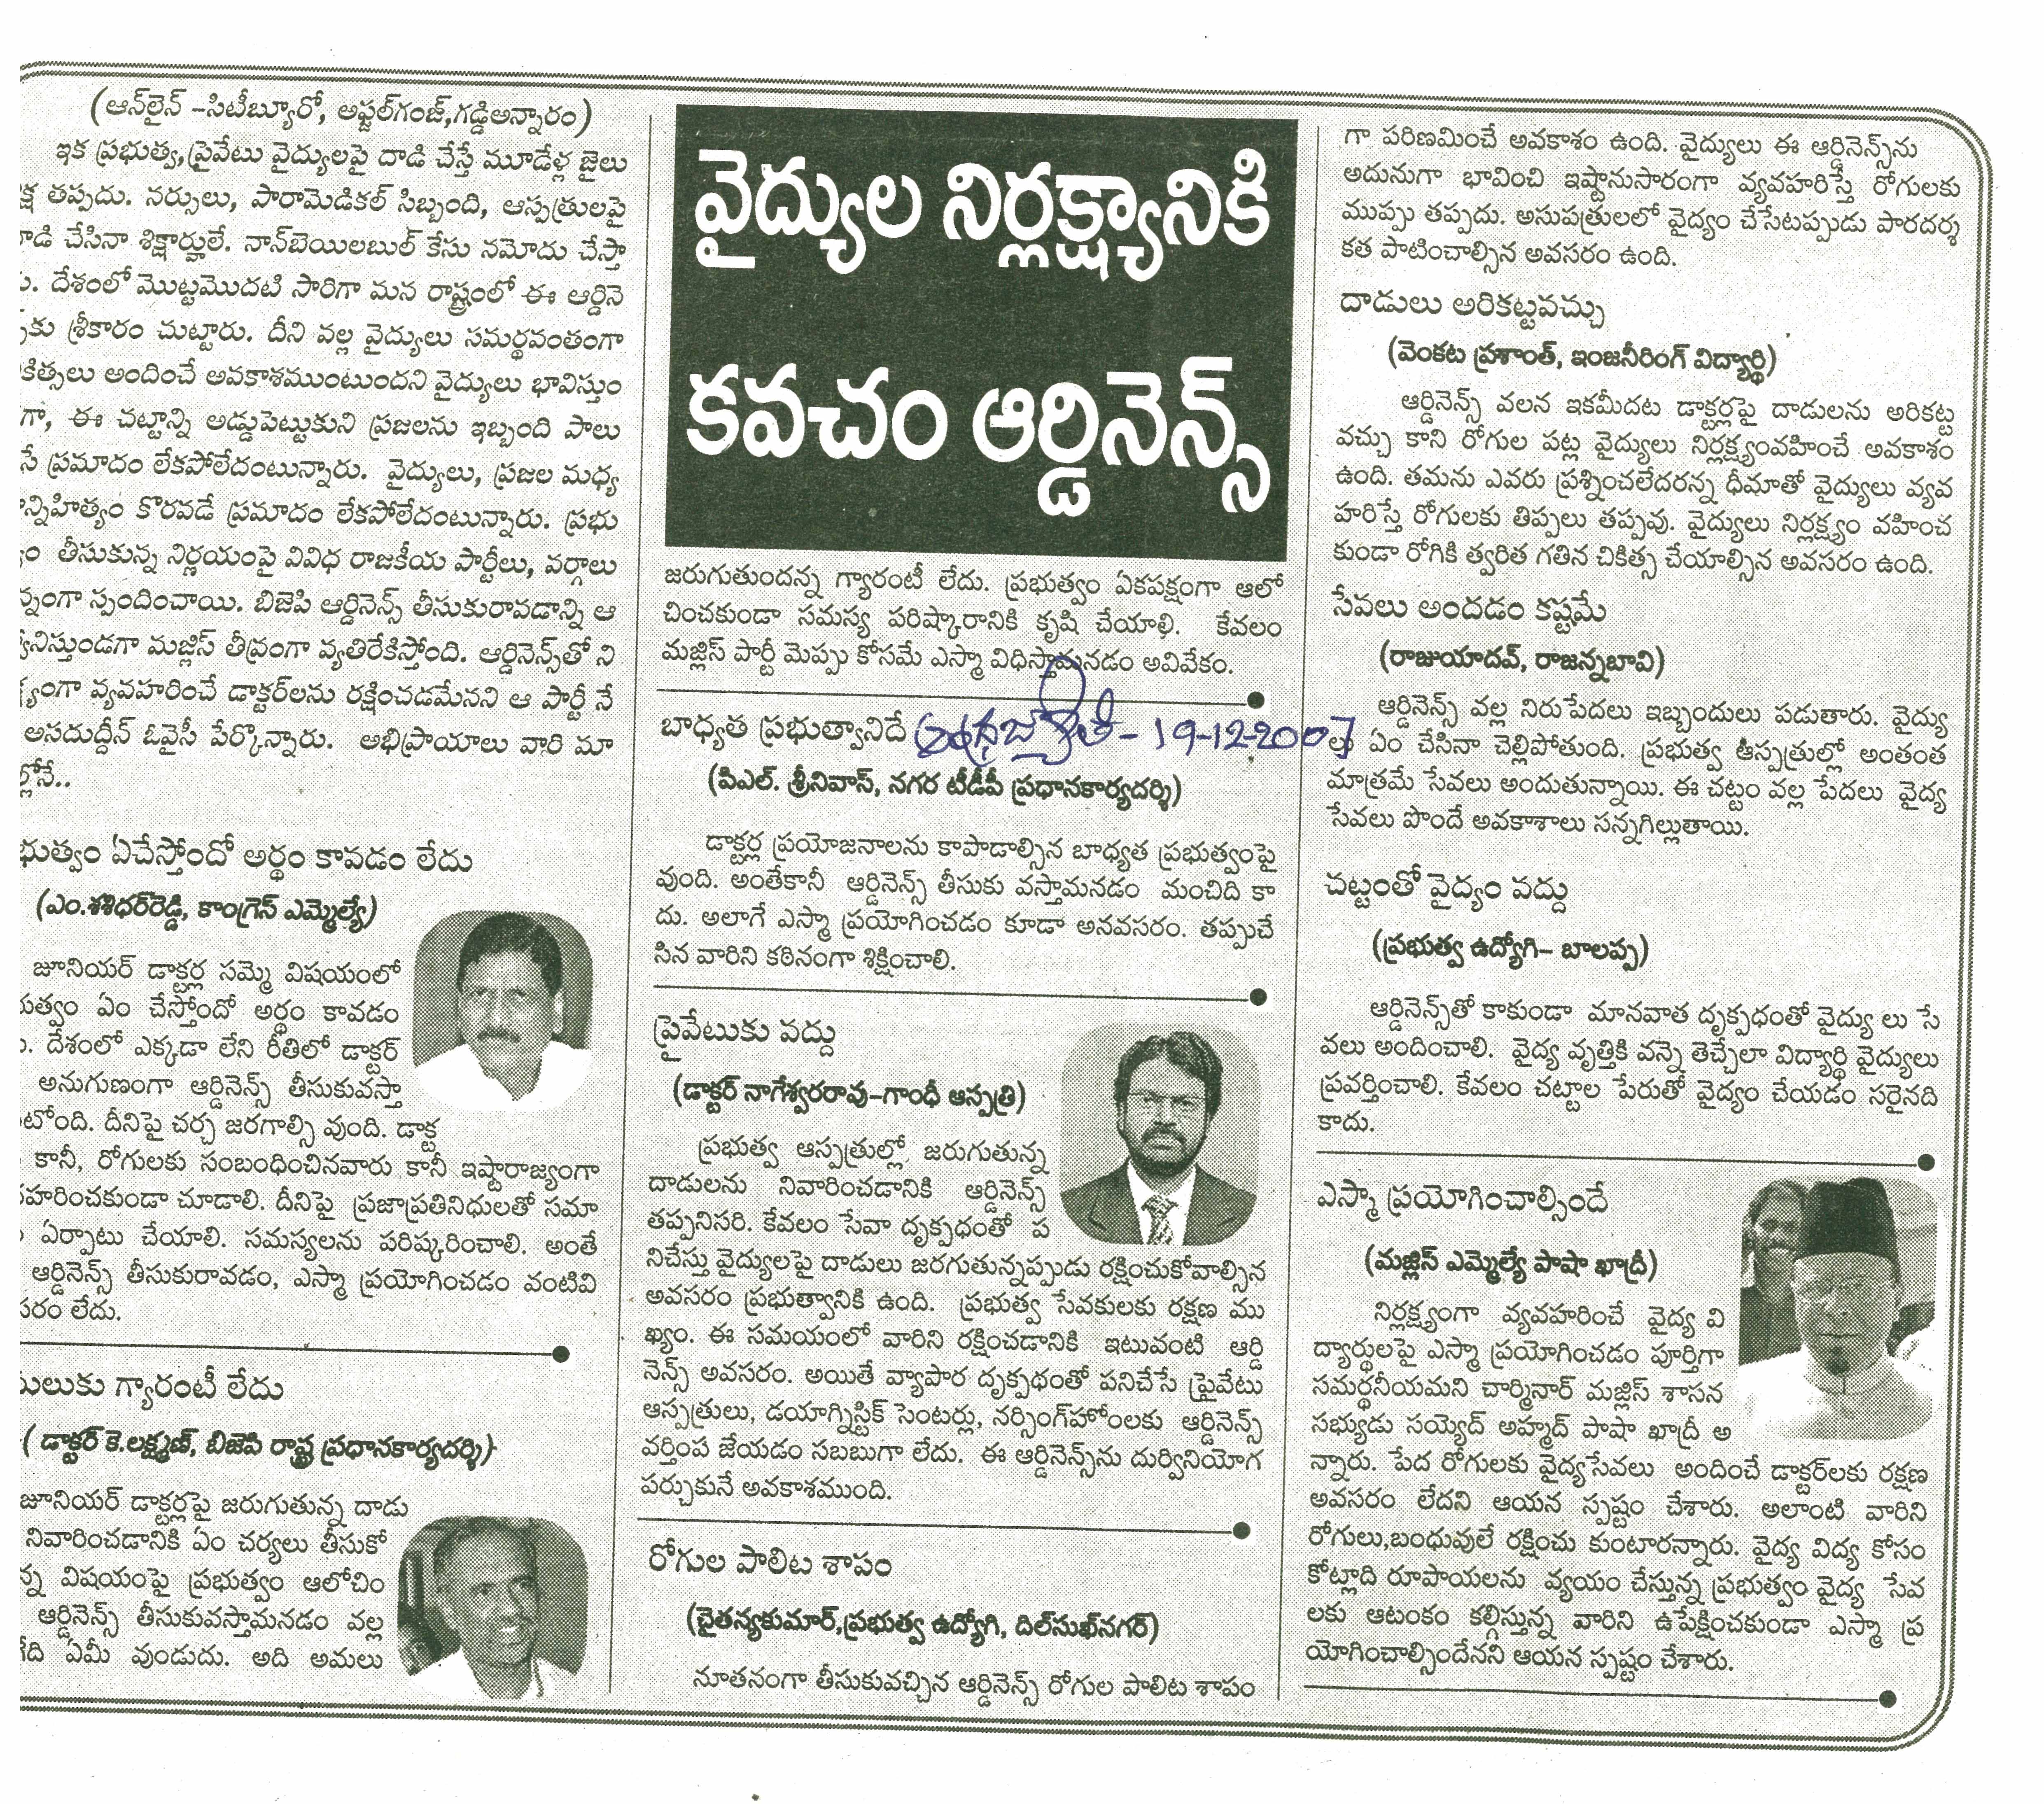 (ఆన్‌లైన్ –సిటీబ్యూరో, అఫ్జల్‌గంజ్,గడ్డిఅన్నారం)
ఇక ప్రభుత్వ,ప్రైవేటు వైద్యులపై దాడి చేస్తే మూడేళ్ల జైలు
క్ష తప్పదు. నర్సులు, పారామెడికల్ సిబ్బంది, ఆస్పత్రులపై
దాడి చేసినా శిక్షార్హులే. నాన్‌బెయిలబుల్ కేసు నమోదు చేస్తా
దేశంలో మొట్టమొదటి సారిగా మన రాష్ట్రంలో ఈ ఆర్డినె
కు శ్రీకారం చుట్టారు. దీని వల్ల వైద్యులు సమర్థవంతంగా
కిత్సలు అందించే అవకాశముంటుందని వైద్యులు భావిస్తుం
గా, ఈ చట్టాన్ని అడ్డుపెట్టుకుని ప్రజలను ఇబ్బంది పాలు
సే ప్రమాదం లేకపోలేదంటున్నారు. వైద్యులు, ప్రజల మధ్య
న్నిహిత్యం కొరవడే ప్రమాదం లేకపోలేదంటున్నారు. ప్రభు
తీసుకున్న నిర్ణయంపై వివిధ రాజకీయ పార్టీలు, వర్గాలు
న్నంగా స్పందించాయి. బిజెపి ఆర్డినెన్స్ తీసుకురావడాన్ని ఆ
నిస్తుండగా మజ్లిస్ తీవ్రంగా వ్యతిరేకిస్తోంది. ఆర్డినెన్స్‌తో ని
్యంగా వ్యవహరించే డాక్టర్‌లను రక్షించడమేనని ఆ పార్టీ నే
అసదుద్దీన్ ఓవైసీ పేర్కొన్నారు. అభిప్రాయాలు వారి మా
ల్లోనే..
భుత్వం ఏచేస్తోందో అర్థం కావడం లేదు
(ఎం.శశిధర్‌రెడ్డి, కాంగ్రెస్ ఎమ్మెల్యే)
జూనియర్ డాక్టర్ల సమ్మె విషయంలో
భుత్వం ఏం చేస్తోందో అర్థం కావడం
దేశంలో ఎక్కడా లేని రీతిలో డాక్టర్
అనుగుణంగా ఆర్డినెన్స్ తీసుకువస్తా
టోంది. దీనిపై చర్చ జరగాల్సి వుంది. డాక్ట
కానీ, రోగులకు సంబంధించినవారు కానీ ఇష్టారాజ్యంగా
హరించకుండా చూడాలి. దీనిపై ప్రజాప్రతినిధులతో సమా
ఏర్పాటు చేయాలి. సమస్యలను పరిష్కరించాలి. అంతే
ఆర్డినెన్స్ తీసుకురావడం, ఎస్మా ప్రయోగించడం వంటివి
సరం లేదు.
లుకు గ్యారంటీ లేదు
( డాక్టర్ కె.లక్ష్మణ్, బిజెపి రాష్ట్ర ప్రధానకార్యదర్శి)
జూనియర్ డాక్టర్లపై జరుగుతున్న దాడు
నివారించడానికి ఏం చర్యలు తీసుకో
న్న విషయంపై ప్రభుత్వం ఆలోచిం
ఆర్డినెన్స్ తీసుకువస్తామనడం వల్ల
గేది ఏమీ వుండుదు. అది అమలు
వైద్యుల నిర్లక్ష్యానికి
కవచం ఆర్డినెన్స్
జరుగుతుందన్న గ్యారంటీ లేదు. ప్రభుత్వం ఏకపక్షంగా ఆలో
చించకుండా సమస్య పరిష్కారానికి కృషి చేయాలి. కేవలం
మజ్లిస్ పార్టీ మెప్పు కోసమే ఎస్మా విధిస్తామనడం అవివేకం.
బాధ్యత ప్రభుత్వానిదే ఆంధ్రజ్యోతి - 19-12-2007
(పిఎల్. శ్రీనివాస్, నగర టీడీపీ ప్రధానకార్యదర్శి)
డాక్టర్ల ప్రయోజనాలను కాపాడాల్సిన బాధ్యత ప్రభుత్వంపై
వుంది. అంతేకానీ ఆర్డినెన్స్ తీసుకు వస్తామనడం మంచిది కా
దు. అలాగే ఎస్మా ప్రయోగించడం కూడా అనవసరం. తప్పుచే
సిన వారిని కఠినంగా శిక్షించాలి.
ప్రైవేటుకు వద్దు
(డాక్టర్ నాగేశ్వరరావు–గాంధీ ఆస్పత్రి)
ప్రభుత్వ ఆస్పత్రుల్లో జరుగుతున్న
దాడులను నివారించడానికి ఆర్డినెన్స్
తప్పనిసరి. కేవలం సేవా దృక్పథంతో ప
నిచేస్తు వైద్యులపై దాడులు జరగుతున్నప్పుడు రక్షించుకోవాల్సిన
అవసరం ప్రభుత్వానికి ఉంది. ప్రభుత్వ సేవకులకు రక్షణ ము
ఖ్యం. ఈ సమయంలో వారిని రక్షించడానికి ఇటువంటి ఆర్డి
నెన్స్ అవసరం. అయితే వ్యాపార దృక్పథంతో పనిచేసే ప్రైవేటు
ఆస్పత్రులు, డయాగ్నిస్టిక్ సెంటర్లు, నర్సింగ్‌హోంలకు ఆర్డినెన్స్
వర్తింప జేయడం సబబుగా లేదు. ఈ ఆర్డినెన్స్‌ను దుర్వినియోగ
పర్చుకునే అవకాశముంది.
రోగుల పాలిట శాపం
(చైతన్యకుమార్,ప్రభుత్వ ఉద్యోగి, దిల్‌సుఖ్‌నగర్)
నూతనంగా తీసుకువచ్చిన ఆర్డినెన్స్ రోగుల పాలిట శాపం
గా పరిణమించే అవకాశం ఉంది. వైద్యులు ఈ ఆర్డినెన్స్‌ను
అదునుగా భావించి ఇష్టానుసారంగా వ్యవహరిస్తే రోగులకు
ముప్పు తప్పదు. అసుపత్రులలో వైద్యం చేసేటప్పుడు పారదర్శ
కత పాటించాల్సిన అవసరం ఉంది.
దాడులు అరికట్టవచ్చు
(వెంకట ప్రశాంత్, ఇంజనీరింగ్ విద్యార్థి)
ఆర్డినెన్స్ వలన ఇకమీదట డాక్టర్లపై దాడులను అరికట్ట
వచ్చు కాని రోగుల పట్ల వైద్యులు నిర్లక్ష్యంవహించే అవకాశం
ఉంది. తమను ఎవరు ప్రశ్నించలేదరన్న ధీమాతో వైద్యులు వ్యవ
హరిస్తే రోగులకు తిప్పలు తప్పవు. వైద్యులు నిర్లక్ష్యం వహించ
కుండా రోగికి త్వరిత గతిన చికిత్స చేయాల్సిన అవసరం ఉంది.
సేవలు అందడం కష్టమే
(రాజుయాదవ్, రాజన్నబావి)
ఆర్డినెన్స్ వల్ల నిరుపేదలు ఇబ్బందులు పడుతారు. వైద్యు
లు ఏం చేసినా చెల్లిపోతుంది. ప్రభుత్వ ఆస్పత్రుల్లో అంతంత
మాత్రమే సేవలు అందుతున్నాయి. ఈ చట్టం వల్ల పేదలు వైద్య
సేవలు పొందే అవకాశాలు సన్నగిల్లుతాయి.
చట్టంతో వైద్యం వద్దు
(ప్రభుత్వ ఉద్యోగి– బాలప్ప)
ఆర్డినెన్స్‌తో కాకుండా మానవాత దృక్పధంతో వైద్యు లు సే
వలు అందించాలి. వైద్య వృత్తికి వన్నె తెచ్చేలా విద్యార్థి వైద్యులు
ప్రవర్తించాలి. కేవలం చట్టాల పేరుతో వైద్యం చేయడం సరైనది
కాదు.
ఎస్మా ప్రయోగించాల్సిందే
(మజ్లిస్ ఎమ్మెల్యే పాషా ఖాద్రీ)
నిర్లక్ష్యంగా వ్యవహరించే వైద్య వి
ద్యార్థులపై ఎస్మా ప్రయోగించడం పూర్తిగా
సమర్థనీయమని చార్మినార్ మజ్లిస్ శాసన
సభ్యుడు సయ్యెద్ అహ్మద్ పాషా ఖాద్రీ అ
న్నారు. పేద రోగులకు వైద్యసేవలు అందించే డాక్టర్‌లకు రక్షణ
అవసరం లేదని ఆయన స్పష్టం చేశారు. అలాంటి వారిని
రోగులు,బంధువులే రక్షించు కుంటారన్నారు. వైద్య విద్య కోసం
కోట్లాది రూపాయలను వ్యయం చేస్తున్న ప్రభుత్వం వైద్య సేవ
లకు ఆటంకం కల్గిస్తున్న వారిని ఉపేక్షించకుండా ఎస్మా ప్ర
యోగించాల్సిందేనని ఆయన స్పష్టం చేశారు.